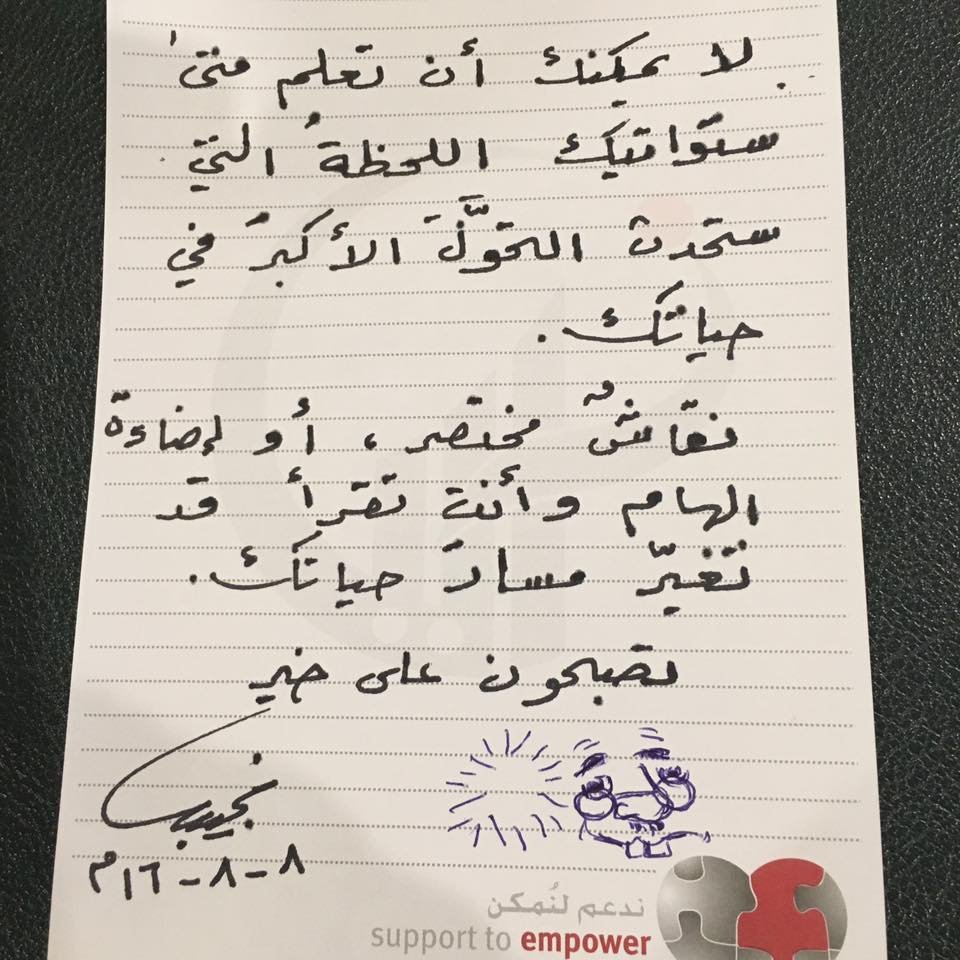 لا يمكنك أن تعلم متى
ستواتيك اللحظةُ التي
ستحدث التحوّلَ الأكبرَ في
حياتك.
نقاشٌ مختصر، أو إضاءة
الهام وأنت تقرأ قد
تغيّر مسارَ حياتك.
تصبحون على خير
نجيب
٨-٨-١٦م
ندعم لنُمكن
support to empower